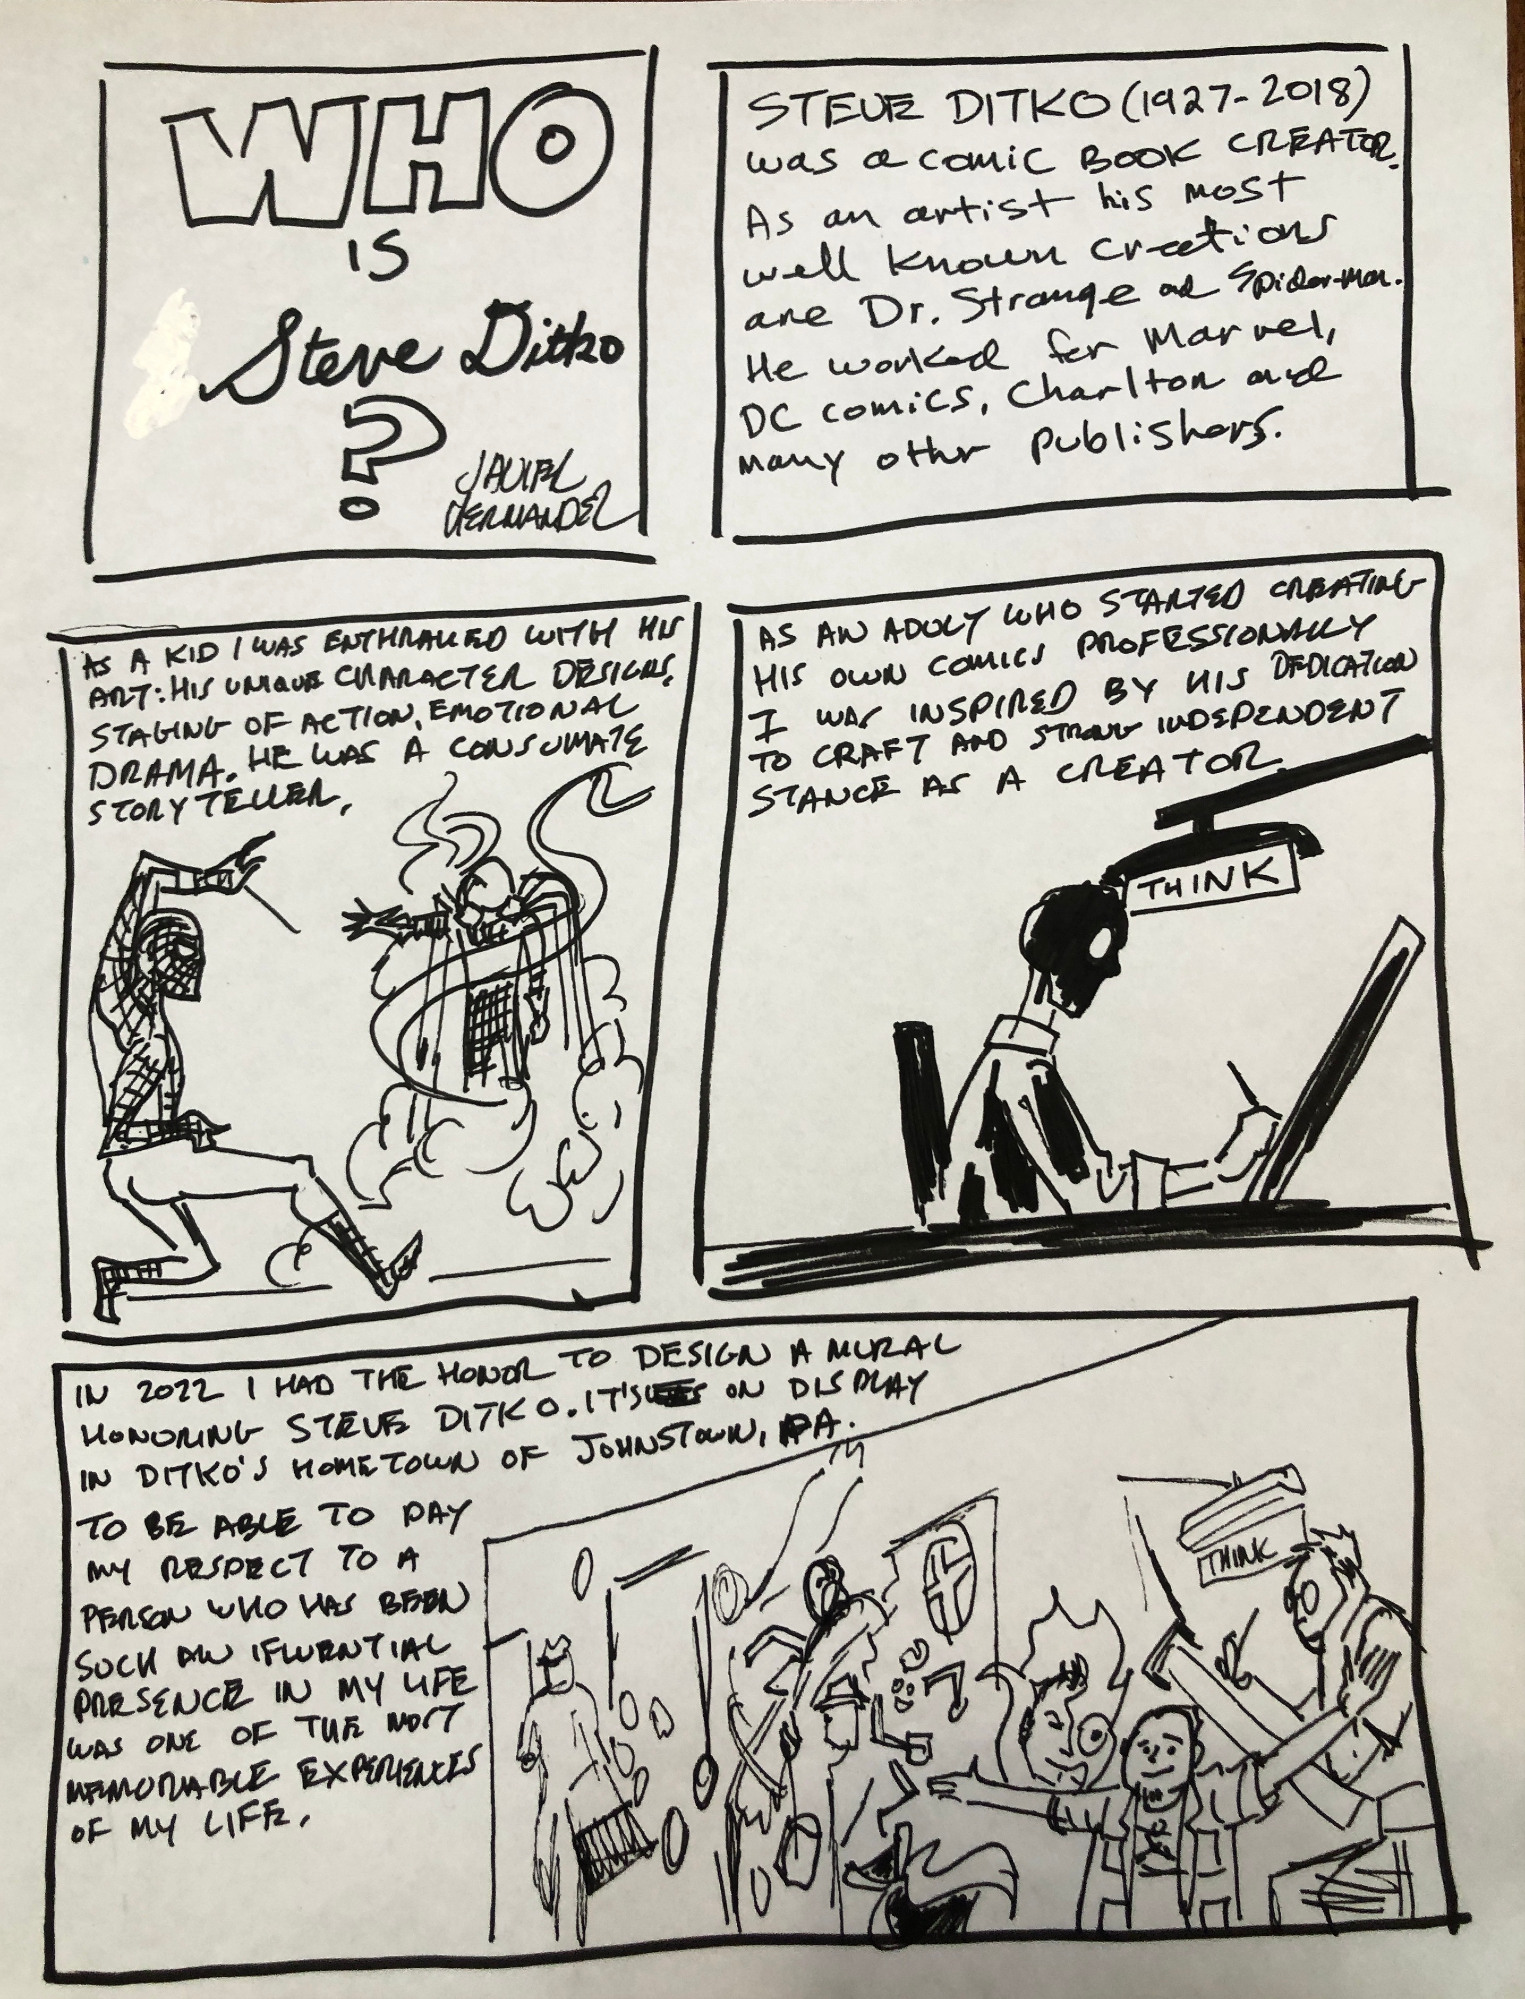 WHO
IS
Steve Ditko
?
JAVIER
HERNANDEZ
STEVE DITKO (1927-2018)
was a comic BOOK CREATOR.
As an artist his most
well known creations
are Dr. Strange and Spider-Man.
He worked for Marvel,
DC comics, Charlton and
many other publishers.
AS A KID I WAS ENTHRALLED WITH HIS
ART: HIS UNIQUE CHARACTER DESIGNS,
STAGING OF ACTION, EMOTIONAL
DRAMA. HE WAS A CONSUMATE
STORYTELLER.
AS AN ADULT WHO STARTED CREATING
HIS OWN COMICS PROFESSIONALLY
I WAS INSPIRED BY HIS DEDICATION
TO CRAFT AND STRONG INDEPENDENT
STANCE AS A CREATOR.
THINK
IN 2022 I HAD THE HONOR TO DESIGN A MURAL
HONORING STEVE DITKO. IT'S ON DISPLAY
IN DITKO'S HOMETOWN OF JOHNSTOWN, PA.
TO BE ABLE TO PAY
MY RESPECT TO A
PERSON WHO HAS BEEN
SUCH AN IFLUENTIAL
PRESENCE IN MY LIFE
WAS ONE OF THE MOST
MEMORABLE EXPERIENCES
OF MY LIFE.
THINK